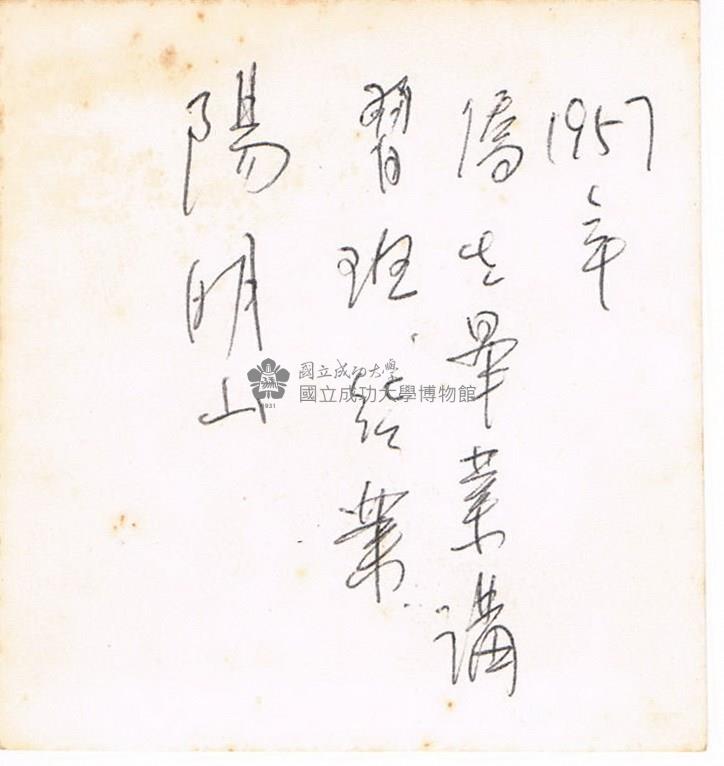 1957年
僑生畢業講
習班結業
陽明山
國立成功大學
國立成功大學博物館
1931